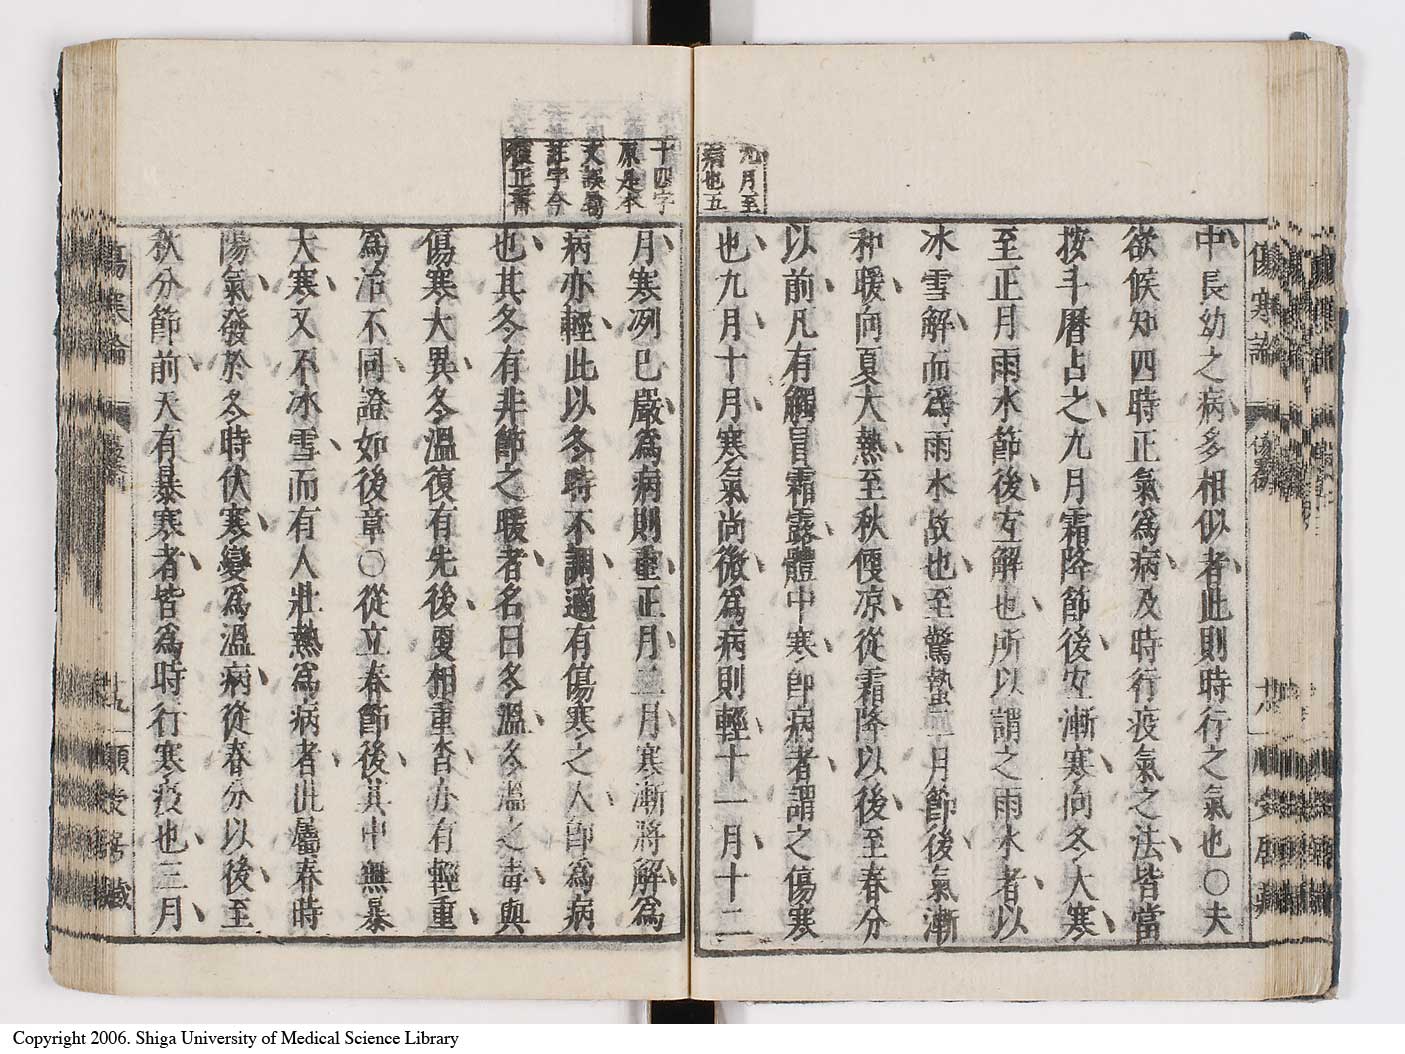 九月至
病也五
中長幼之病多相似者此則時行之氣也○夫
欲候知四時正氣為病及時行疫氣之法皆當
按斗暦占之九月霜降節後宐漸寒向冬大寒
至正月雨水節後宐解也所以謂之雨水者以
冰雪解而爲雨水故也至驚蟄二月節後氣漸
和暖向夏大熱至秋便凉從霜降以後至春分
以前凡有觸冒霜露體中寒即病者謂之傷寒
也九月十月寒氣尚微為病則輕十一月十二
傷寒論
傷寒例
十四字
原是本
文誤爲
註字今
復正書
月寒冽已嚴為病則重正月二月寒漸將解為
病亦輕此以冬時不調適有傷寒之人即為病
也其冬有非節之暖者名曰冬溫冬溫之毒與
傷寒大異冬溫復有先後更相重沓亦有輕重
為治不同證如後章○從立春節後其中無暴
大寒又不冰雪而有人壯熱為病者此屬春時
陽氣發於冬時伏寒變為溫病從春分以後至
秋分節前天有暴寒者皆為時行寒疫也三月
傷寒論
Copyright 2006. Shiga University of Medical Science Library